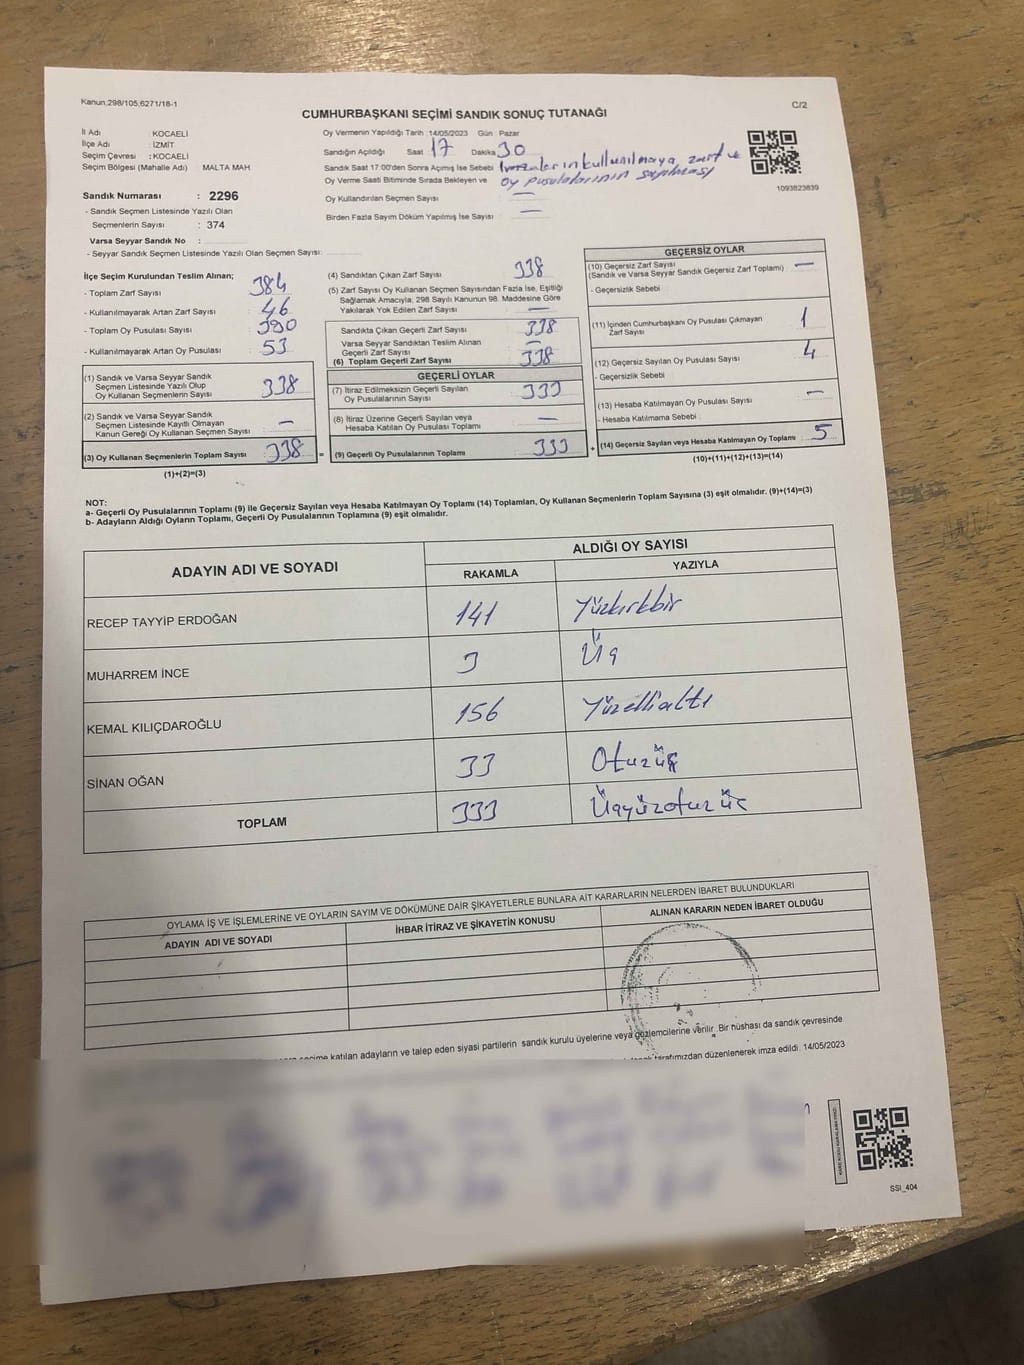 Kanun,298/105,6271/18-1
C/2
CUMHURBAŞKANI SEÇİMİ SANDIK SONUÇ TUTANAĞI
İl Adı : KOCAELİ
İlçe Adı : İZMİT
Seçim Çevresi : KOCAELİ
Seçim Bölgesi (Mahalle Adı) MALTA MAH
Sandık Numarası : 2296
- Sandık Seçmen Listesinde Yazılı Olan
Seçmenlerin Sayısı : 374
Varsa Seyyar Sandık No :
- Seyyar Sandık Seçmen Listesinde Yazılı Olan Seçmen Sayısı:
Oy Vermenin Yapıldığı Tarih :14/05/2023 Gün : Pazar
Sandığın Açıldığı Saat 17 Dakika 30
Sandık Saat 17.00'den Sonra Açılmış İse Sebebi kullanılmaya, zarf ve
oy pusulalarının sayılması
Oy Verme Saati Bitiminde Sırada Bekleyen ve
Oy Kullandırılan Seçmen Sayısı : —
Birden Fazla Sayım Döküm Yapılmış İse Sayısı : —
1093823839
İlçe Seçim Kurulundan Teslim Alınan;
- Toplam Zarf Sayısı 384
- Kullanılmayarak Artan Zarf Sayısı 46
- Toplam Oy Pusulası Sayısı 390
- Kullanılmayarak Artan Oy Pusulası 53
(1) Sandık ve Varsa Seyyar Sandık
Seçmen Listesinde Yazılı Olup
Oy Kullanan Seçmenlerin Sayısı 338
(2) Sandık ve Varsa Seyyar Sandık
Seçmen Listesinde Kayıtlı Olmayan
Kanun Gereği Oy Kullanan Seçmen Sayısı —
(3) Oy Kullanan Seçmenlerin Toplam Sayısı 338 =
(1)+(2)=(3)
(4) Sandıktan Çıkan Zarf Sayısı 338
(5) Zarf Sayısı Oy Kullanan Seçmen Sayısından Fazla İse, Eşitliği
Sağlamak Amacıyla, 298 Sayılı Kanunun 98. Maddesine Göre
Yakılarak Yok Edilen Zarf Sayısı —
Sandıkta Çıkan Geçerli Zarf Sayısı 338
Varsa Seyyar Sandıktan Teslim Alınan
Geçerli Zarf Sayısı —
(6) Toplam Geçerli Zarf Sayısı 338
GEÇERLİ OYLAR
(7) İtiraz Edilmeksizin Geçerli Sayılan
Oy Pusulasının Sayısı 333
(8) İtiraz Üzerine Geçerli Sayılan veya
Hesaba Katılan Oy Pusulası Toplamı —
(9) Geçerli Oy Pusulalarının Toplamı 333 +
GEÇERSİZ OYLAR
(10) Geçersiz Zarf Sayısı
(Sandık ve Varsa Seyyar Sandık Geçersiz Zarf Toplamı) —
- Geçersizlik Sebebi :
(11) İçinden Cumhurbaşkanı Oy Pusulası Çıkmayan
Zarf Sayısı 1
(12) Geçersiz Sayılan Oy Pusulası Sayısı 4
- Geçersizlik Sebebi :
(13) Hesaba Katılmayan Oy Pusulası Sayısı —
- Hesaba Katılmama Sebebi :
(14) Geçersiz Sayılan veya Hesaba Katılmayan Oy Toplamı 5
(10)+(11)+(12)+(13)=(14)
NOT:
a- Geçerli Oy Pusulalarının Toplamı (9) ile Geçersiz Sayılan veya Hesaba Katılmayan Oy Toplamı (14) Toplamları, Oy Kullanan Seçmenlerin Toplam Sayısına (3) eşit olmalıdır. (9)+(14)=(3)
b- Adayların Aldığı Oyların Toplamı, Geçerli Oy Pusulalarının Toplamına (9) eşit olmalıdır.
ADAYIN ADI VE SOYADI
ALDIĞI OY SAYISI
RAKAMLA YAZIYLA
RECEP TAYYİP ERDOĞAN 141 Yüzkırkbir
MUHARREM İNCE 3 Üç
KEMAL KILIÇDAROĞLU 156 Yüzelliاltı
SİNAN OĞAN 33 Otuzüç
TOPLAM 333 Üçyüzotuzüç
OYLAMA İŞ VE İŞLEMLERİNE VE OYLARIN SAYIM VE DÖKÜMÜNE DAİR ŞİKAYETLERLE BUNLARA AİT KARARLARIN NELERDEN İBARET BULUNDUKLARI
ADAYIN ADI VE SOYADI İHBAR İTİRAZ VE ŞİKAYETİN KONUSU ALINAN KARARIN NEDEN İBARET OLDUĞU
seçime katılan adayların ve talep eden siyasi partilerin sandık kurulu üyelerine veya gözlemcilerine verilir. Bir nüshası da sandık çevresinde
tarafımızdan düzenlenerek imza edildi. 14/05/2023
SSI_404